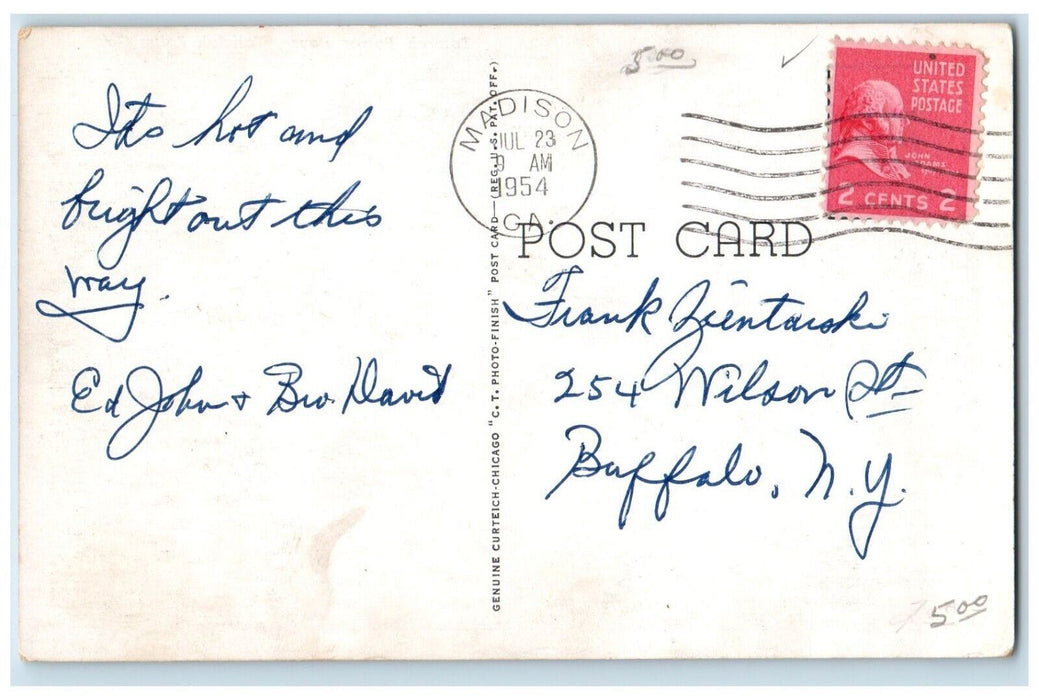 Its hot and
bright out this
way.
Ed John + Bro. David
GENUINE CURTEICH-CHICAGO "C. T. PHOTO-FINISH" POST CARD—(REG. U. S. PAT. OFF.)
5.00
MADISON
JUL 23
9 AM
1954
GA.
UNITED
STATES
POSTAGE
JOHN
ADAMS
2 CENTS 2
POST CARD
Frank Zientarski
254 Wilson St
Buffalo, N.Y.
5.00